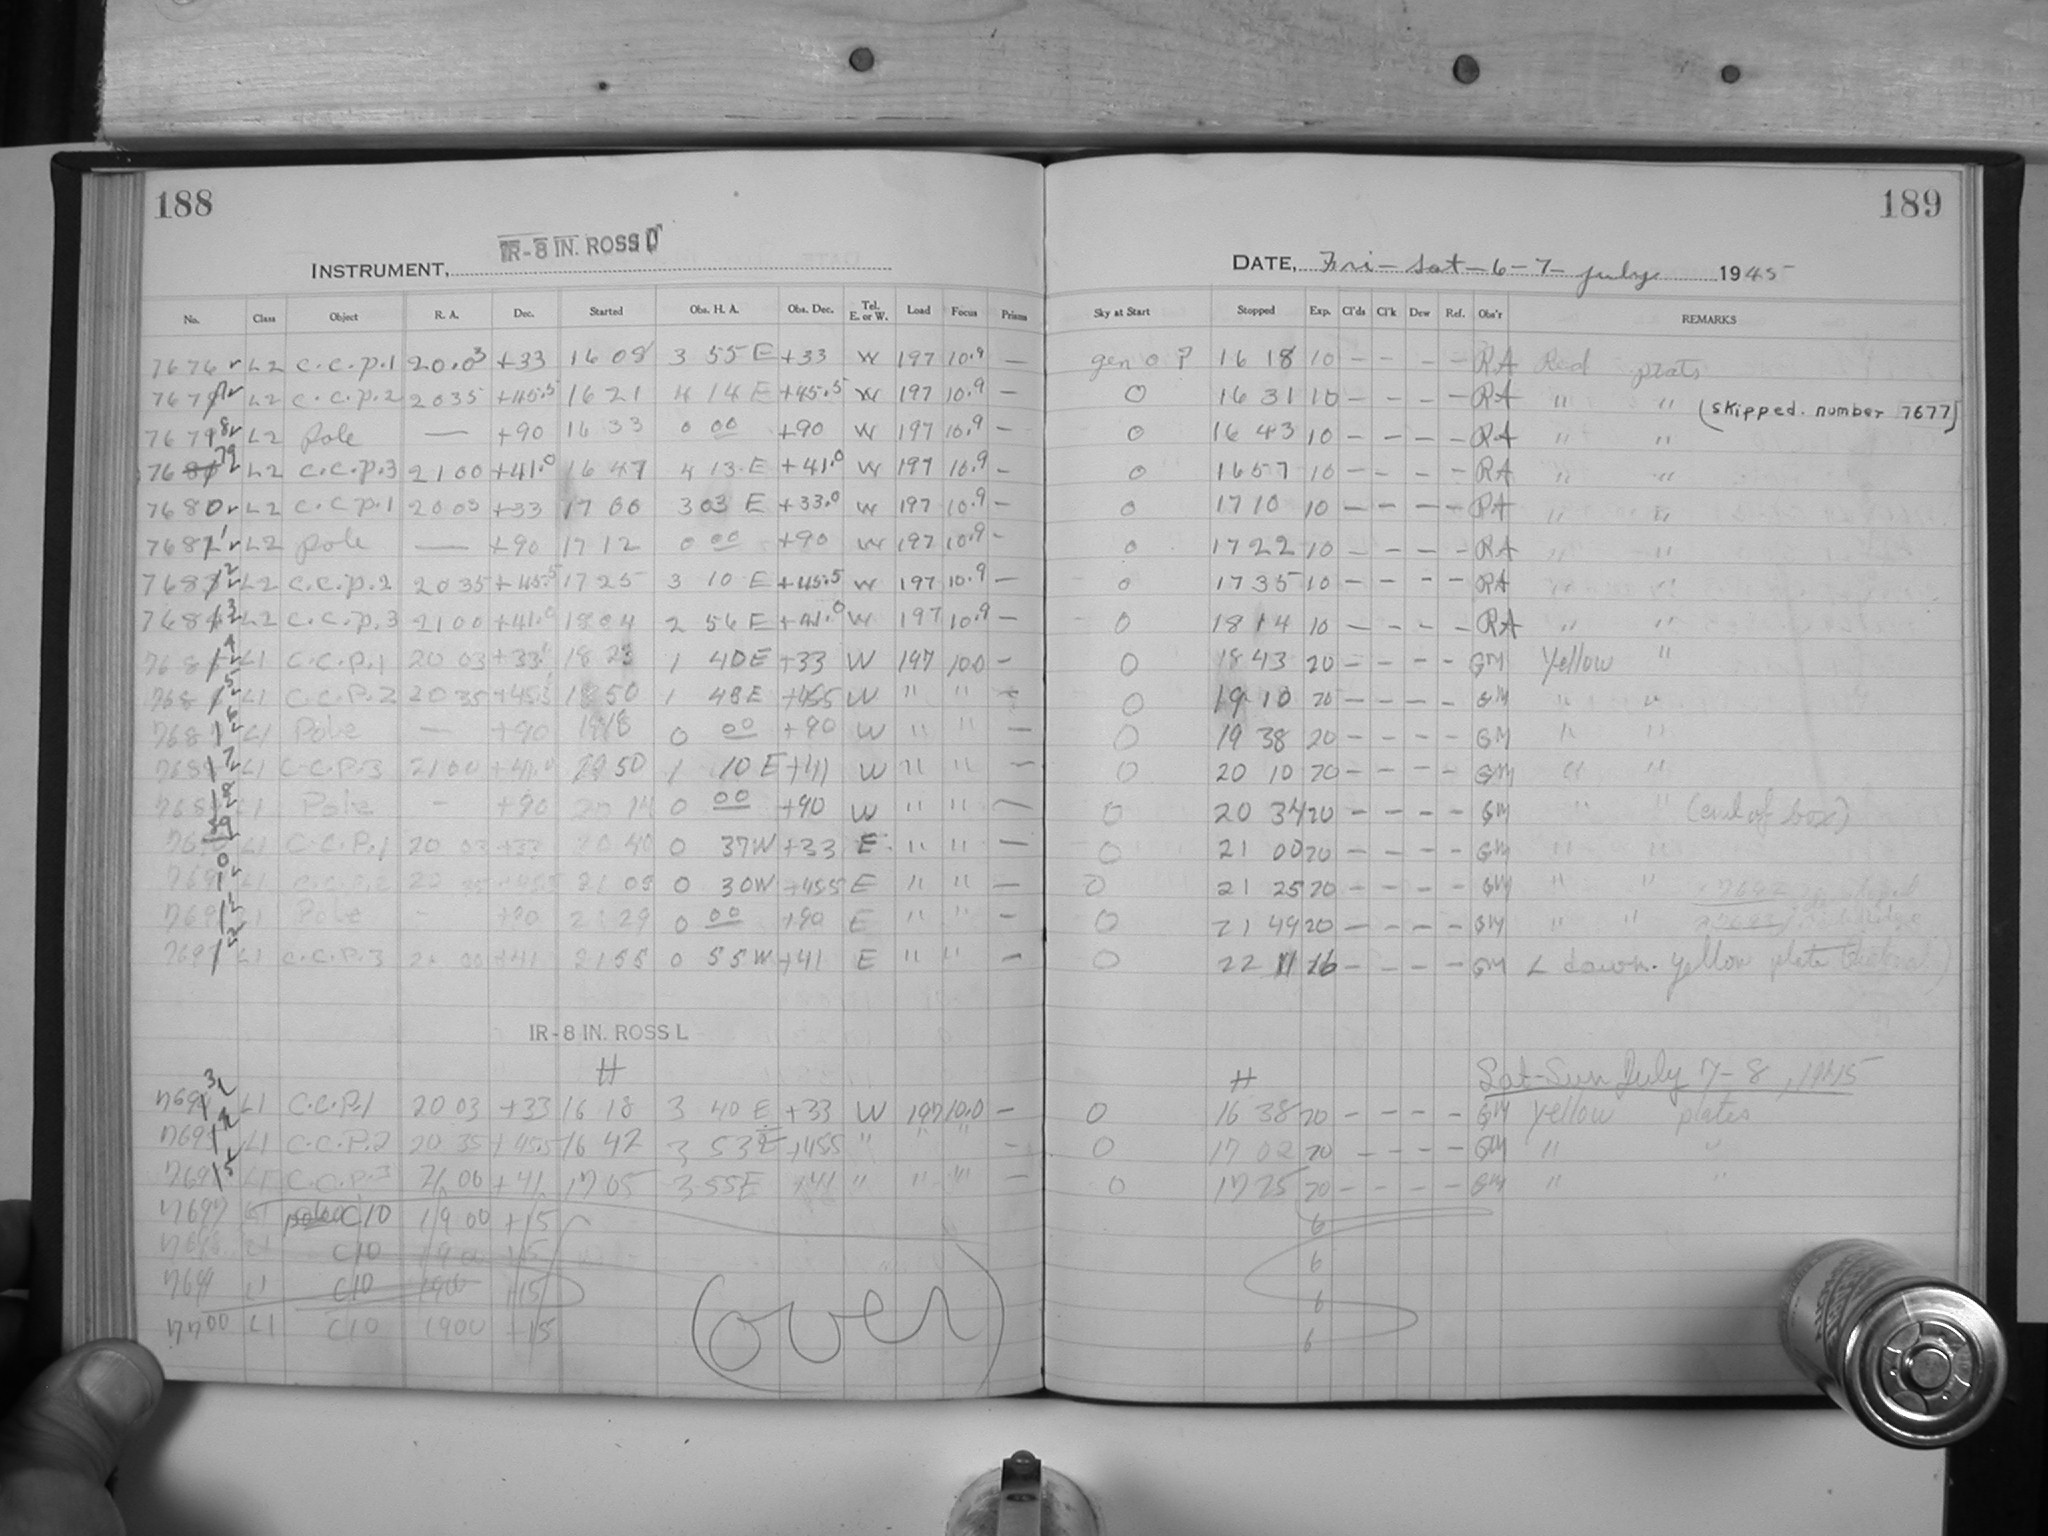 188
INSTRUMENT, IR-8 IN. ROSS
No. Class Object R. A. Dec. Started Obs. H. A. Obs. Dec. Tel. E. or W. Load Focus Prisms
7676 L2 C.C.P.1 20.03 +33 16 08 3 55 E +33 W 197 10.9 —
767 L2 C.C.P.2 20 35 +45.5 16 21 4 14 E +45.5 W 197 10.9 —
7678 L2 Pole — +90 16 33 0 00 +90 W 197 10.9 —
7679 L2 C.C.P.3 21 00 +41.0 16 47 4 13 E +41.0 W 197 10.9 —
7680 L2 C.C.P.1 20 03 +33 17 00 3 03 E +33.0 W 197 10.9 —
7681 L2 Pole — +90 17 12 0 00 +90 W 197 10.9 —
7682 L2 C.C.P.2 20 35 +45.5 17 25 3 10 E +45.5 W 197 10.9 —
7683 L2 C.C.P.3 21 00 +41.0 18 04 2 56 E +41.0 W 197 10.9 —
7684 L1 C.C.P.1 20 03 +33 18 23 1 40 E +33 W 197 10.0 —
7685 L1 C.C.P.2 20 35 +45.5 18 50 1 48 E +455 W " " —
7686 L1 Pole — +90 19 18 0 00 +90 W " " —
7687 L1 C.C.P.3 21 00 +41.0 19 50 1 10 E +41 W " " —
7688 L1 Pole — +90 20 14 0 00 +90 W " " —
7689 L1 C.C.P.1 20 03 +33 20 40 0 37 W +33 E " " —
7690 L1 C.C.P.2 20 35 +455 21 05 0 30 W +455 E " " —
7691 L1 Pole — +90 21 29 0 00 +90 E " " —
7692 L1 C.C.P.3 21 00 +41 21 55 0 55 W +41 E " " —
IR-8 IN. ROSS L
H
7693 L1 C.C.P.1 20 03 +33 16 18 3 40 E +33 W 197 10.0 —
7694 L1 C.C.P.2 20 35 +45.5 16 42 3 53 E +455 " " " —
7695 L1 C.C.P.3 21 00 +41 17 05 3 55 E +41 " " " —
7697 L1 pole C10 19 00 +15
L1 C10 19 00 +15
7699 L1 C10 1900 +15
7700 L1 C10 1900 +15
(over)
189
DATE, Fri-Sat-6-7-July 1945
Sky at Start Stopped Exp. Cl'ds Cl'k Dew Ref. Obs'r REMARKS
gen 0 ? 16 18 10 — — — — RA Red plats
0 16 31 10 — — — — RA " " (skipped. number 7677)
0 16 43 10 — — — — RA " "
0 16 57 10 — — — — RA " "
0 17 10 10 — — — — RA " "
0 17 22 10 — — — — RA " "
0 17 35 10 — — — — RA
0 18 14 10 — — — — RA " "
0 18 43 20 — — — — GM Yellow "
0 19 10 20 — — — — GM " "
0 19 38 20 — — — — GM " "
0 20 10 20 — — — — GM " "
0 20 34 20 — — — — GM " " (end of box)
0 21 00 20 — — — — GM " "
0 21 25 20 — — — — GM " "
0 21 49 20 — — — — GM " "
0 22 11 16 — — — — GM L down. Yellow plate
H Sat-Sun July 7-8, 1945
0 16 38 20 — — — — GM Yellow plates
0 17 02 20 — — — — GM " "
0 17 25 20 — — — — GM " "
6
6
6
6